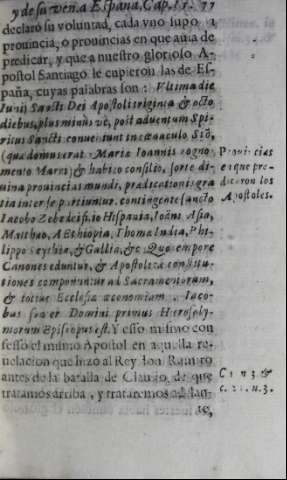 y de su ven. a España, Cap. 77
declaró su voluntad, cada vno supo a
prouincia, ò prouincias en que auia de
predicar, y que a nuestro glorioso A-
postol Santiago le cupieron las de Es-
paña, cuyas palabras son: Vltima die
Iunij Sancti Dei Apostoli triginta & octo
diebus, plus minus vè, post aduentum Spi-
ritus Sancti conueniunt in cœnaculo Sió,
(quæ domus erat Mariæ Ioannis cogno-
mento Marci) & habito consilio, sorte di-
uina prouincias mundi, prædicationis gra
tia inter se partiuntur. contingente sancto
Iacobo Zebedei filio Hispania, Ioãni Asia,
Matthæo Æthiopia, Thomæ India, Phi-
lippo Scythia, & Gallia, &c. Quo tempore
Canones eduntur, & Apostolicæ constitu-
tiones componuntur ad Sacramentorum,
& totius Ecclesiæ œconomiam. Iaco-
bus frater Domini primus Hierosoly-
morum Episcopus est. Y esso mismo con
fessó el mismo Apostol en aquella re-
uelacion que hizo al Rey don Ramiro
antes de la batalla de Clauijo, de que
tratamos arriba, y trataremos adelan-
te,
Prouincias
en que pre-
dicaron los
Apostoles.
n. 3. &
n. 3.